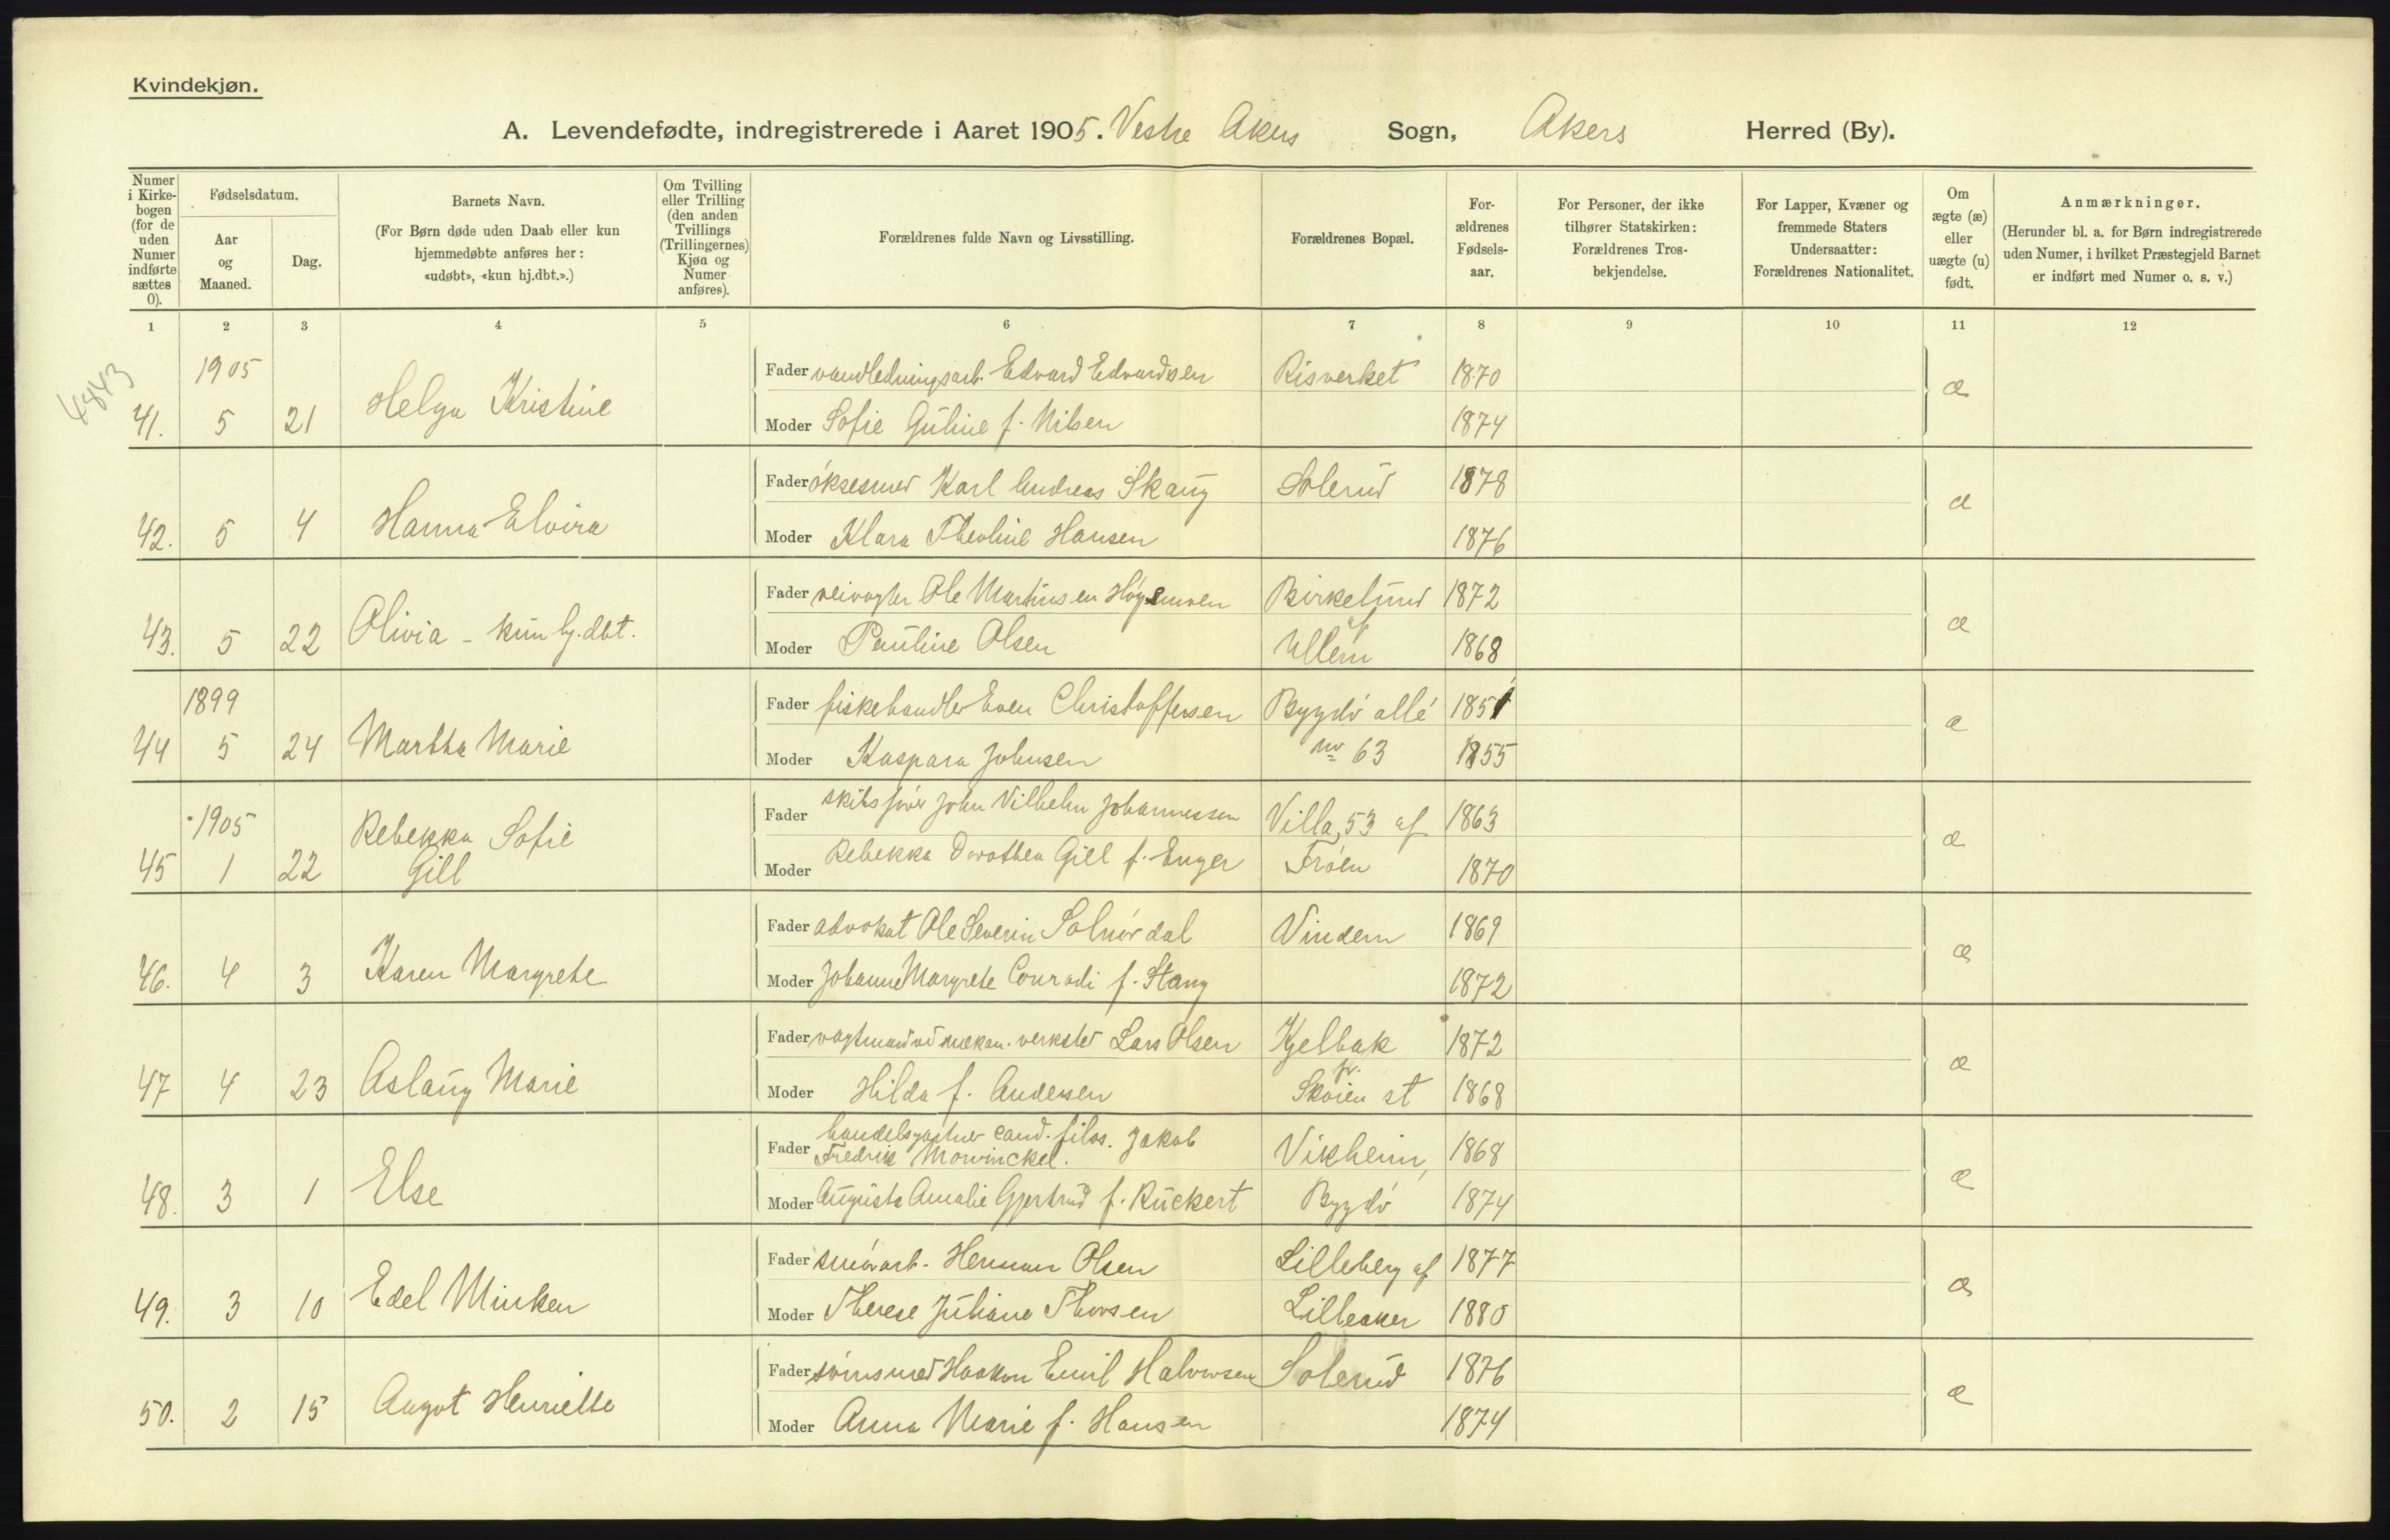 Kvindekjøn.
A. Levendefødte, indregistrerede i Aaret 1905. Vestre Akers Sogn, Akers Herred (By).
Numer i Kirkebogen (for de uden Numer indførte sættes 0).
Fødselsdatum.
Aar og Maaned.
Dag.
Barnets Navn.
(For Børn døde uden Daab eller kun hjemmedøbte anføres her: «udøbt», «kun hj.dbt.».)
Om Tvilling eller Trilling (den anden Tvillings (Trillingernes) Kjøn og Numer anføres).
Forældrenes fulde Navn og Livsstilling.
Forældrenes Bopæl.
Forældrenes Fødselsaar.
For Personer, der ikke tilhører Statskirken: Forældrenes Trosbekjendelse.
For Lapper, Kvæner og fremmede Staters Undersaatter: Forældrenes Nationalitet.
Om ægte (æ) eller uægte (u) født.
Anmærkninger.
(Herunder bl. a. for Børn indregistrerede uden Numer, i hvilket Præstegjeld Barnet er indført med Numer o. s. v.)
1 2 3 4 5 6 7 8 9 10 11 12
4843
1905 Fader vandledningsarb. Edvard Edvardsen Risverket 1870 æ
41. 5 21 Helga Kristine Moder Sofie Guline f. Nilsen 1874
Fader øksesmed Karl Andreas Skaug Solerud 1878 æ
42. 5 4 Hanna Elvira Moder Klara Theoline Hansen 1876
Fader veivogter Ole Martinsen Birkelund 1872 æ
43. 5 22 Olivia - kun hj.dbt. Moder Pauline Olsen af Ullern 1868
1899 Fader fiskehandler Even Christoffersen Bygdø allé 1851 æ
44 5 24 Martha Marie Moder Kaspara Johnsen no 63 1855
1905 Rebekka Sofie Fader skibsfører John Vilhelm Johannessen Villa 53 af 1863 æ
45 1 22 Gill Moder Rebekka Dorothea Gill f. Enger Frøen 1870
Fader advokat Ole Severin Solnørdal Vindern 1869 æ
46. 4 3 Karen Margrete Moder Johanne Margrete Conradi f. Stang 1872
Fader vagtmand ved mekan. verksted Lars Olsen Kjelbak 1872 æ
47 4 23 Aslaug Marie Moder Hilda f. Andersen pr. Skøien st 1868
Fader handelsgartner cand. filos. Jakob Fredrik Mowinckel. Vikheim, 1868 æ
48. 3 1 Else Moder Augusta Amalie Gjertrud f. Rückert Bygdø 1874
Fader smørarb. Herman Olsen Lilleberg af 1877 æ
49. 3 10 Edel Minken Moder Therese Juliane Thorsen Lilleaker 1880
Fader sømsmed Haakon Emil Halvorsen Solerud 1876 æ
50. 2 15 Aagot Henriette Moder Anna Marie f. Hansen 1874